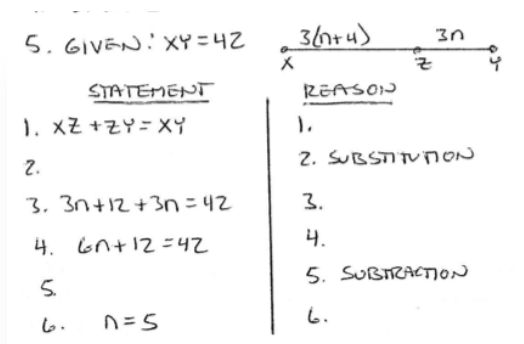 5. GIVEN: XY=42
3(n+4) 3n
X Z Y
STATEMENT REASON
1. XZ+ZY=XY 1.
2. 2. SUBSTITUTION
3. 3n+12+3n=42 3.
4. 6n+12=42 4.
5. 5. SUBTRACTION
6. n=5 6.